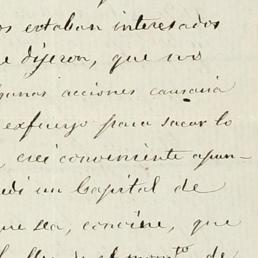 os estaban interesados
e dijeron, que no
gunas acciones causaria
exfuerzo para sacar lo
creí conveniente apun-
di un Capital de
que sea, convine, que
de